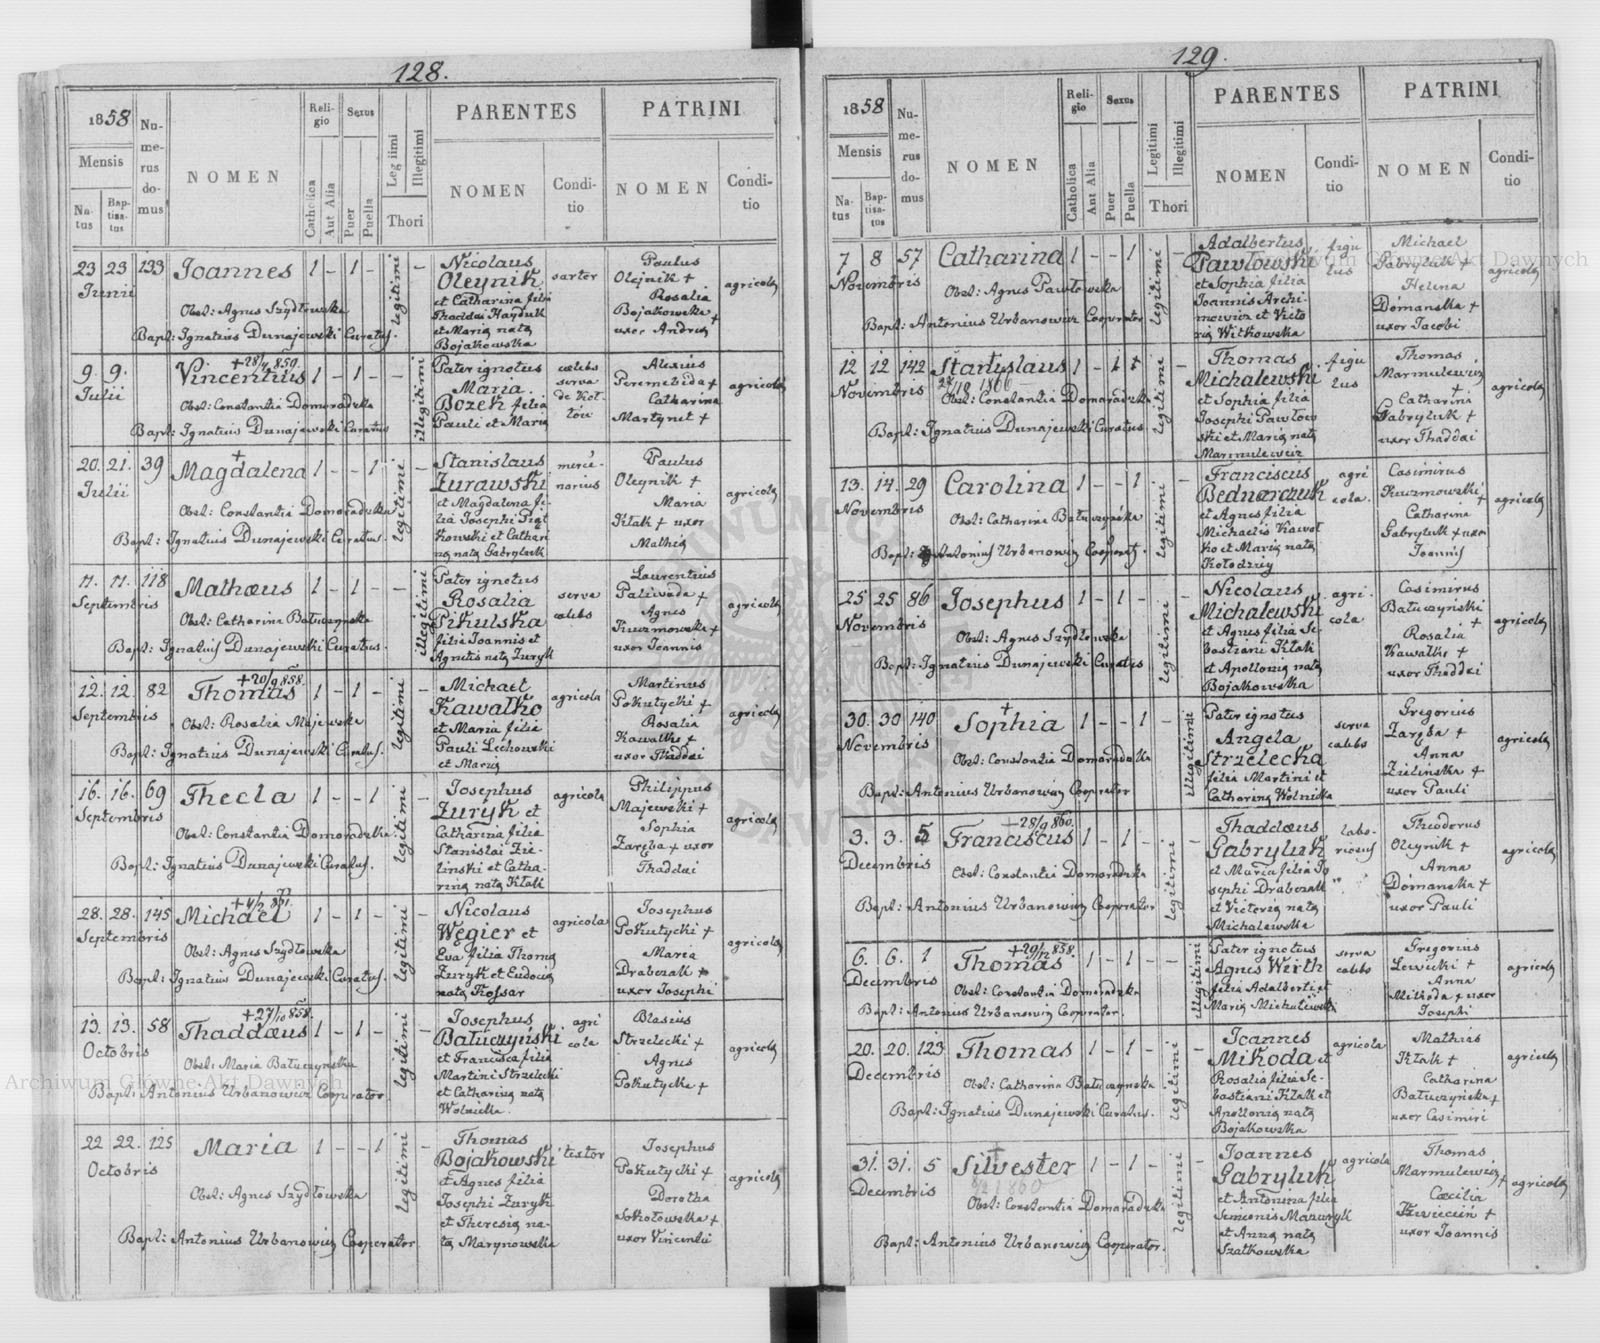 128.
1858
Numerus domus
NOMEN
Religio
Sexus
Legiimi
Illegitimi
PARENTES
PATRINI
Mensis
Natus
Baptisatus
Catholica
Aut Alia
Puer
Puella
Thori
NOMEN
Conditio
NOMEN
Conditio
23 23 133 Joannes 1 - 1 - legitimi -
Junii
Obst: Agnes Szydłowska
Bapt: Ignatius Dunajewski Curatus.
Nicolaus
Oleynik
et Catharina filia
Thaddai Hayduk
et Maria nata
Bojakowska
sartor
Paulus
Olejnik +
Rosalia
Bojakowska +
uxor Andrea
agricola
9. 9. +28/4 859. Vincentius 1 - 1 - - illegitimi
Julii
Obst: Constantia Domoradzka
Bapt: Ignatius Dunajewski Curatus
Pater ignotus
Maria
Bozek filia
Pauli et Maria
caelebs
serva
de Kottów
Alexius
Peremebida +
Catharina
Martynet +
agricola
20. 21. 39 + Magdalena 1 - - 1 legitimi -
Julii
Obst: Constantia Domoradzka
Bapt: Ignatius Dunajewski Curatus.
Stanislaus
Żurawski
et Magdalena filia
Josephi
et Catharina
nata Gabryluk
mercenarius
Paulus
Oleynik +
Maria
Kłak + uxor
Mathia
agricola
11. 11. 118 Mathæus 1 - 1 - - illegitimi
Septembris
Obst: Catharina Batuczynska
Bapt: Ignatius Dunajewski Curatus.
Pater ignotus
Rosalia
Pikulska
filia Joannis et
Agnetis nata Zuryk
serva
caelebs
Laurentius
Paliwoda +
Agnes
Kuzmowska +
uxor Joannis
agricola
12. 12. 82 +20/9 858. Thomas 1 - 1 - legitimi -
Septembris
Obst: Rosalia Majewska
Bapt: Ignatius Dunajewski Curatus.
Michael
Kawałko
et Maria filia
Pauli Lichowski
et Maria
agricola
Martinus
Pokutycki +
Rosalia
Kawałko +
uxor Thaddai
agricola
16. 16. 69 Thecla 1 - - 1 legitimi -
Septembris
Obst: Constantia Domoradzka.
Bapt: Ignatius Dunajewski Curatus.
Josephus
Zuryk et
Catharina filia
Stanislai Zielinski
et Catharina
nata Kłak
agricola
Philippus
Majewski +
Sophia
Zaręba + uxor
Thaddai
agricola
28. 28. 145 Michael 1 - 1 - legitimi -
Septembris
Obst: Agnes Szydłowska
Bapt: Ignatius Dunajewski Curatus.
Nicolaus
Węgier et
Eva filia Thoma
Zuryk et Eudocia
nata Kossar
agricola
Josephus
Pokutycki +
Maria
Drabczak +
uxor Josephi
agricola
13. 13. 58 +27/10 858. Thaddæus 1 - 1 - legitimi -
Octobris
Obst: Maria Batuczynska
Bapt: Antonius Urbanowicz Cooperator.
Josephus
Batuczyński
et Francisca filia
Martini Strzelecki
et Catharina nata
Wolnicka.
agricola
Blasius
Strzelecki +
Agnes
Pokutycka +
agricola
22 22. 125 Maria 1 - - 1 legitimi -
Octobris
Obst: Agnes Szydłowska
Bapt: Antonius Urbanowicz Cooperator
Thomas
Bojakowski
et Agnes filia
Josephi Zuryk
et Theresia nata
Marynowska
textor
Josephus
Pokutycki +
Dorotha
Sokołowska +
uxor Vincentii
agricola
129.
1858
Numerus domus
NOMEN
Religio
Sexus
Legitimi
Illegitimi
PARENTES
PATRINI
Mensis
Natus
Baptisatus
Catholica
Aut Alia
Puer
Puella
Thori
NOMEN
Conditio
NOMEN
Conditio
7 8 57 Catharina 1 - - 1 legitimi -
Novembris
Obst: Agnes Pawłowska
Bapt: Antonius Urbanowicz Cooperator
Adalbertus
Pawłowski
et Sophia filia
Joannis Archimowicz
et Victoria
Witkowska
figulus
Michael
Gabryluk +
Helena
Dómanska +
uxor Jacobi
agricola
12 12 142 Stanislaus 1 - 1 + legitimi -
Novembris 1860
Obst: Constantia Domaradzka
Bapt: Ignatius Dunajewski Curatus
Thomas
Michalewski
et Sophia filia
Josephi Pawłowski
et Maria nata
Marmulewicz
figulus
Thomas
Marmulewicz
+
Catharina
Gabryluk +
uxor Thaddai
agricola
13. 14. 29 Carolina 1 - - 1 legitimi -
Novembris
Obst: Catharina Batuczynska
Bapt: Antonius Urbanowicz Cooperat.
Franciscus
Bednarczuk
et Agnes filia
Michaelis Kawałko
et Maria nata
Kołodziey
agricola.
Casimirus
Kuzmowski +
Catharina
Gabryluk + uxor
Joannis
agricola
25 25 86 Josephus 1 - 1 - legitimi -
Novembris
Obst: Agnes Szydłowska
Bapt: Ignatius Dunajewski Curatus
Nicolaus
Michalewski
et Agnes filia Sebastiani
Kłak
et Apollonia nata
Bojakowska
agricola
Casimirus
Batuczyński
+
Rosalia
Kawałko +
uxor Thaddai
agricola
30. 30 140 + Sophia 1 - - 1 - illegitimi
Novembris
Obst: Constantia Domaradzka
Bapt: Antonius Urbanowicz Cooperator
Pater ignotus
Angela
Strzelecka
filia Martini et
Catharina Wolnicka
serva
caelebs
Gregorius
Zaręba +
Anna
Zielinska +
uxor Pauli
agricola
3. 3. 5 +28/9 860. Franciscus 1 - 1 - legitimi -
Decembris
Obst: Constantia Domoradzka
Bapt: Antonius Urbanowicz Cooperator
Thaddæus
Gabryluk
et Maria filia Josephi
Drabczak
et Victoria nata
Michalewska
laboriosus
Theodorus
Oleynik +
Anna
Dómanska +
uxor Pauli
agricola
6. 6. 1 +29/12 858. Thomas 1 - 1 - - illegitimi
Decembris
Obst: Constantia Domoradzka
Bapt: Antonius Urbanowicz Cooperator.
Pater ignotus
Agnes Werth
filia Adalberti et
Maria Michalewska
serva
caelebs
Gregorius
Lewicki +
Anna
Mikoda + uxor
Josephi
agricola
20. 20. 123 Thomas 1 - 1 - legitimi -
Decembris
Obst: Catharina Batuczynska
Bapt: Ignatius Dunajewski Curatus.
Joannes
Mikoda et
Rosalia filia Sebastiani
Kłak et
Apollonia nata
Bojakowska
agricola
Mathias
Kłak +
Catharina
Batuczyńska +
uxor Casimiri
agricola
31. 31. 5 + Silvester 1 - 1 - legitimi -
Decembris 1860
Obst: Constantia Domaradzka
Bapt: Antonius Urbanowicz Cooperator.
Joannes
Gabryluk
et Antonina filia
Simeonis Mazuryk
et Anna nata
Szatkowska
agricola
Thomas
Marmulewicz +
Cæcilia
Kwiecień +
uxor Joannis
agricola
Archiwum Główne Akt Dawnych
Archiwum Główne Akt Dawnych